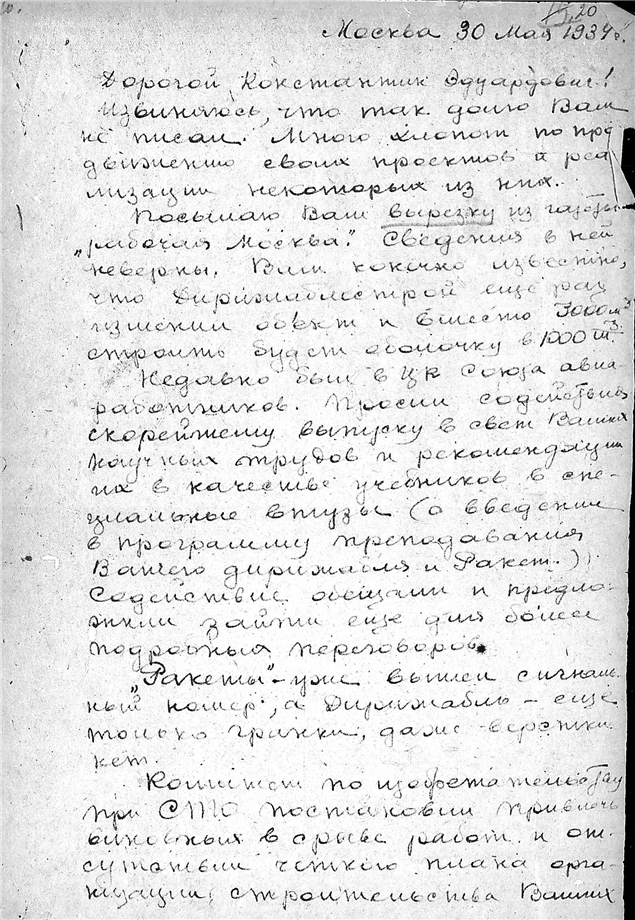 20
Москва 30 Мая 1934 г.
Дорогой Константин Эдуардович!
Извиняюсь, что так долго Вам
не писал. Много хлопот по про
движению своих проектов и реа
лизации некоторых из них.
Посылаю Вам вырезку из газеты
„рабочая Москва". Сведения в ней
неверны. Вам конечно известно,
что Дирижаблестрой еще раз
изменил объект и вместо 3000 м³
строить будет оболочку в 1000 м³.
Недавно был в ЦК Союза авиа-
работников. Просил содействия
скорейшему выпуску в свет Ваших
научных трудов и рекомендации
их в качестве учебников в спе-
циальные втузы (о введении
в программу преподавания
Вашего дирижабля и Ракет.)
Содействие обещали и предло-
жили зайти еще для более
подробных переговоров.
„Ракеты" – уже вышел сигналь-
ный номер, а Дирижабль – еще
только гранки, даже верстки
нет.
Комитет по изобретательству
при СТО постановил привлечь
виновных в срыве работ и от-
сутствии четкого плана орга-
низации строительства Ваших